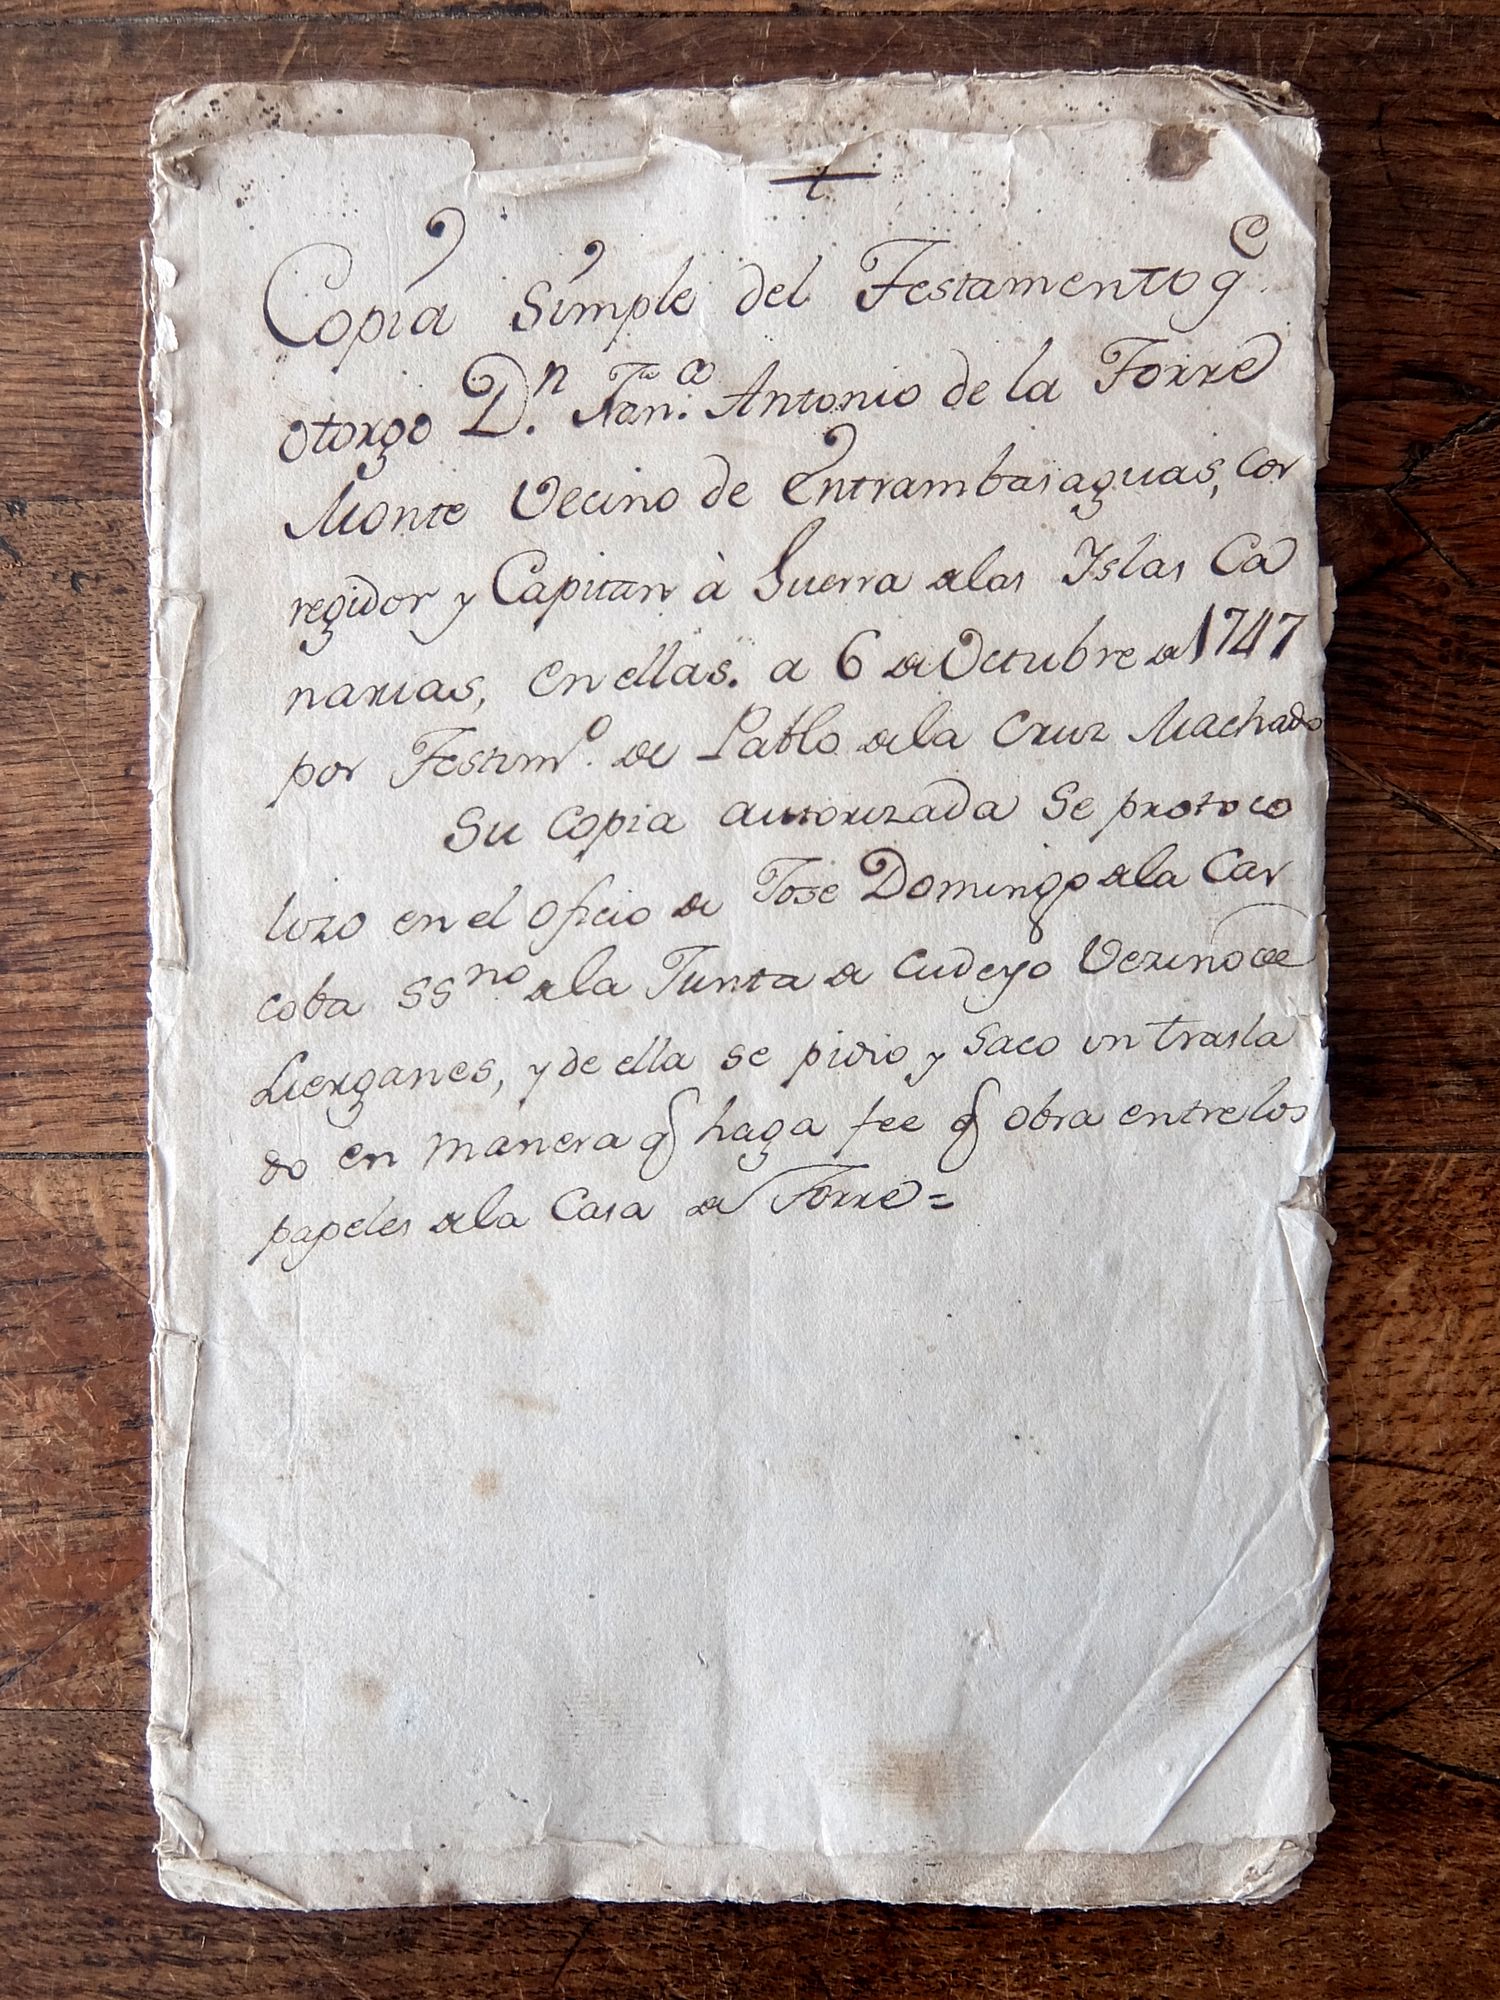 +
Copia simple del Testamento q̃
otorgo D.ⁿ Fran.ᶜᵒ Antonio de la Torre
Monte Vecino de Entrambasaguas, Cor
regidor y Capitan à Guerra de las Yslas Ca
narias, en ellas. a 6 de Octubre de 1747
por Testim.º de Pablo de la Cruz Machado
Su Copia autorizada se protoco
lizo en el oficio de Jose Domingo de la Car
coba SSⁿᵒ de la Junta de Cudeyo Vezino de
Lierganes, y de ella se pidio y saco un trasla
do en manera q̃ haga fee q̃ obra entre los
papeles de la Casa de Torre =